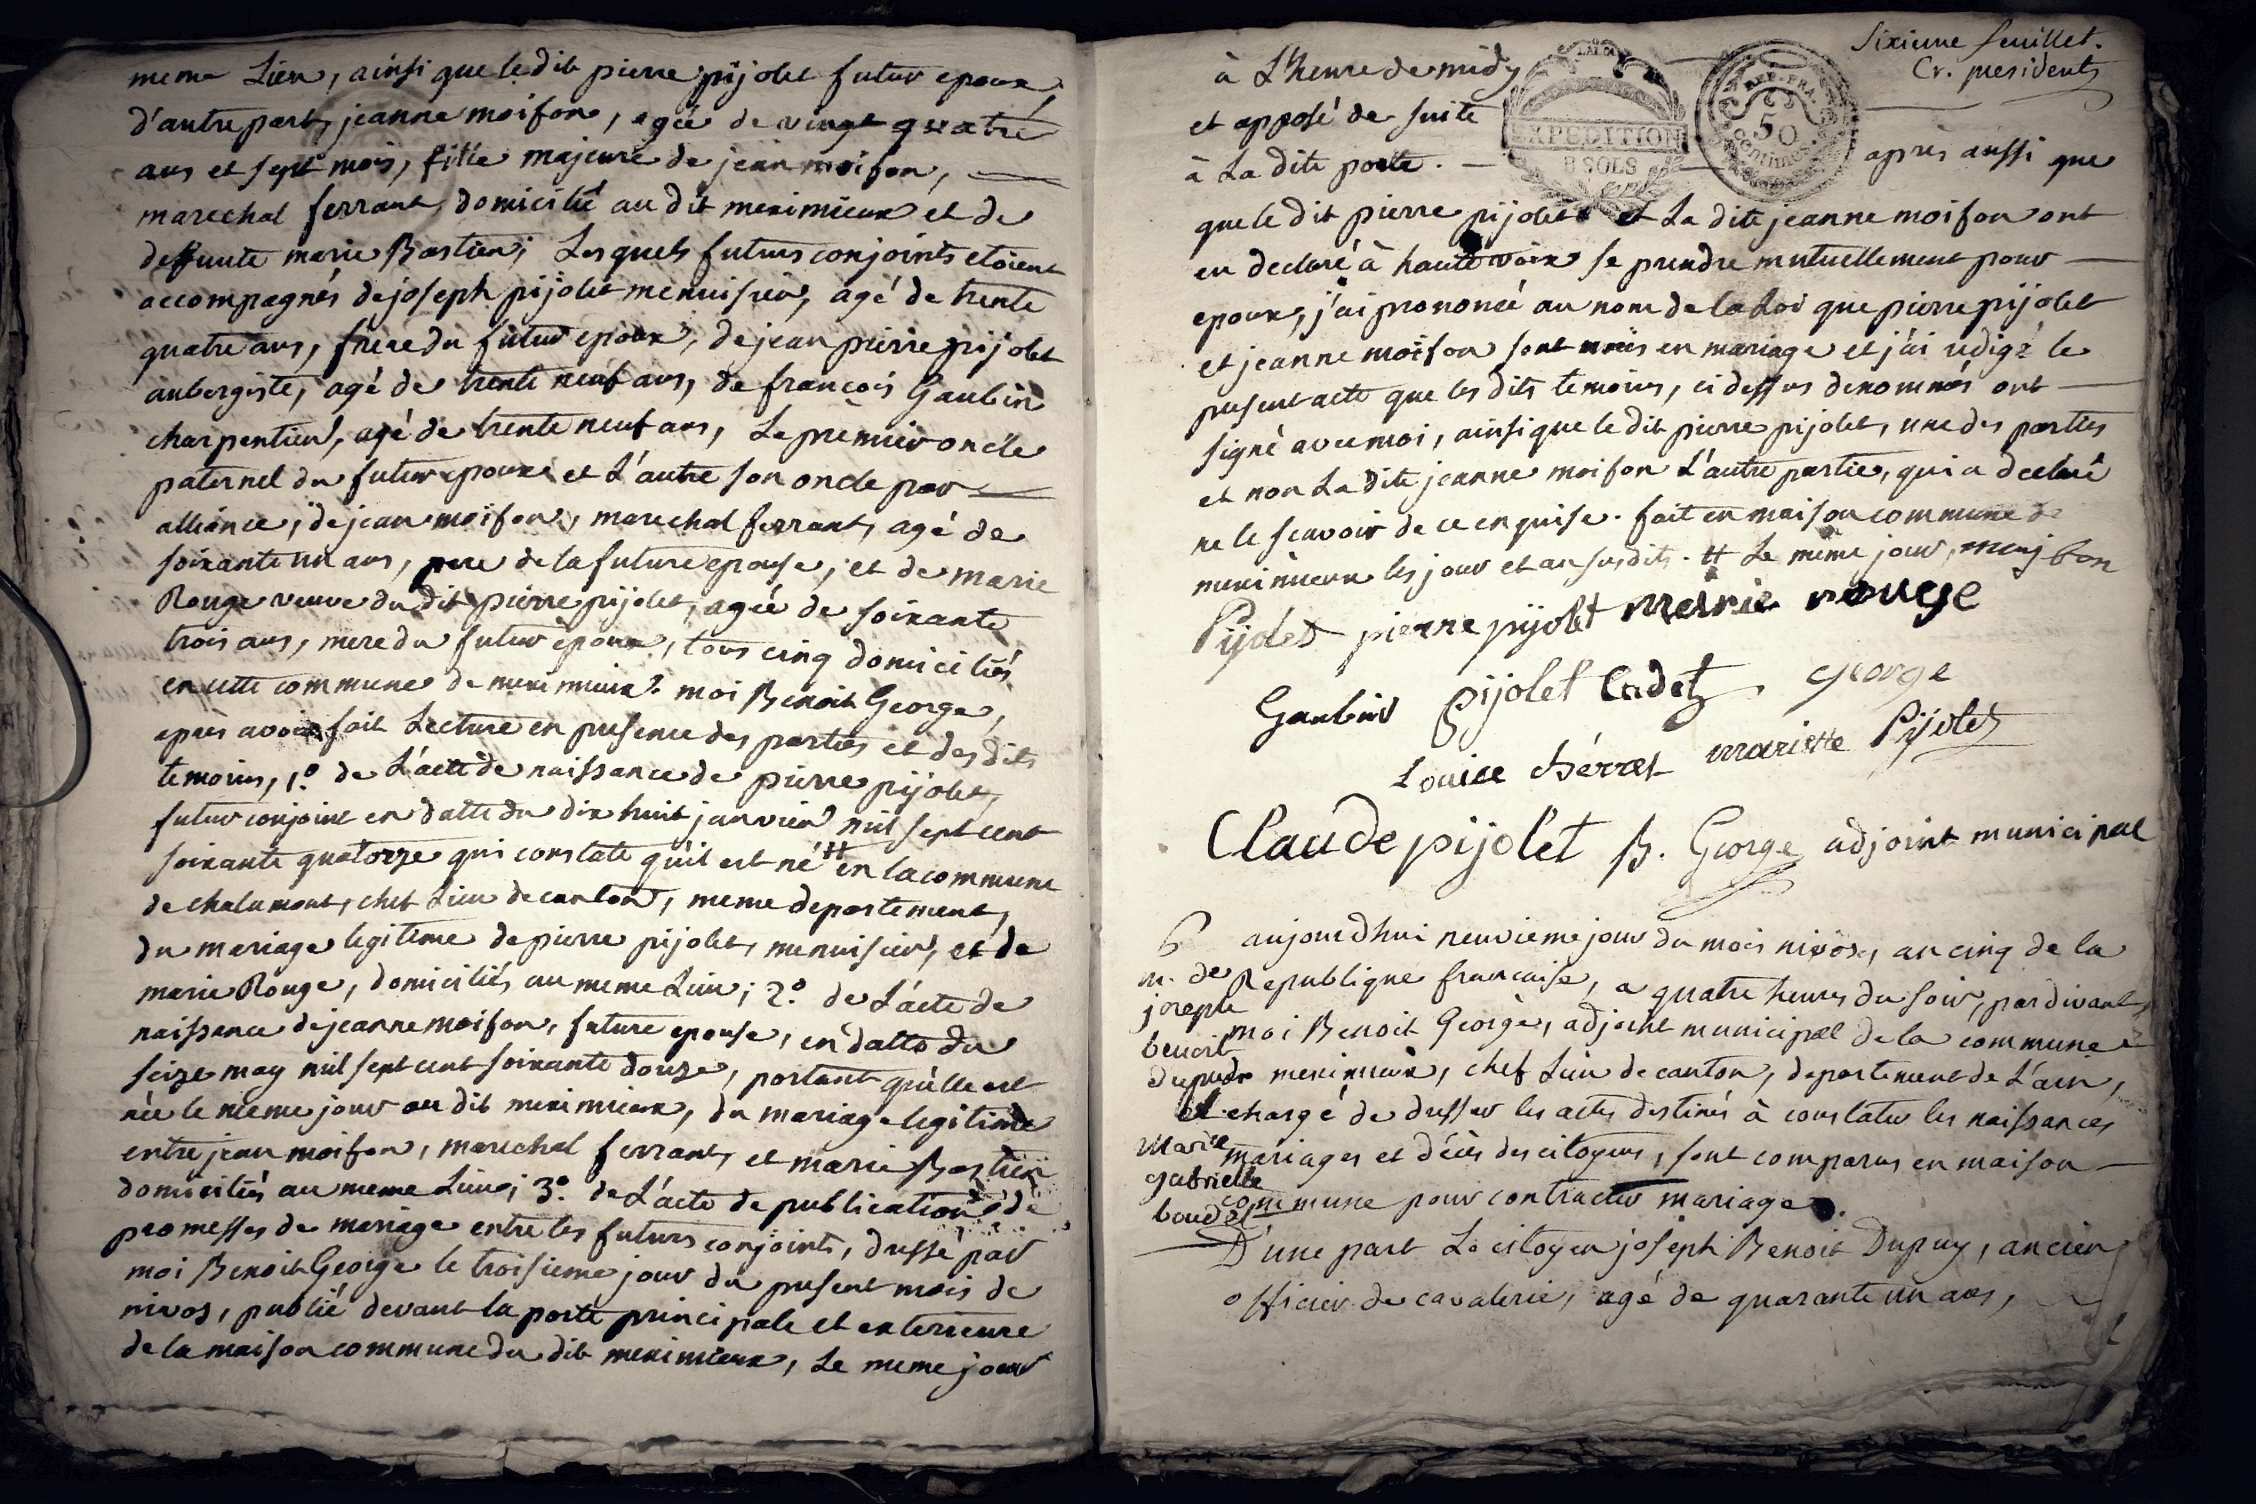 meme Lieu, ainsi que le dit pierre pijolet futur epoux,
d'autre part, jeanne moifon, agée de vingt quatre
ans et sept mois, fille majeure de jean moifon,
marechal ferrant, domicilié au dit meximieux et de
deffunte marie Bastien; Lesquels futurs conjoints etoient
accompagnés de joseph pijolet menuisier, agé de trente
quatre ans, frere du futur epoux, de jean pierre pijolet
aubergiste, agé de trente neuf ans, de françois Gaubin
charpentier, agé de trente neuf ans, Le premier oncle
paternel du futur epoux et L'autre son oncle par
alliance, de jean moifon, marechal ferrant, agé de
soixante un ans, pere de la future epouse; et de marie
Rouge veuve du dit pierre pijolet, agée de soixante
trois ans, mere du futur epoux, tous cinq domiciliés
en cette commune de meximieux. moi Benoit George,
apres avoir fait Lecture en presence des parties et des dits
temoins, 1.º de L'acte de naissance de pierre pijolet,
futur conjoint en datte du dix huit janvier mil sept cent
soixante quatorze qui constate qu'il est né # en la commune
de chalamont, chef Lieu de canton, meme departement,
du mariage legitime de pierre pijolet, menuisier, et de
marie Rouge, domiciliés au meme Lieu; 2.º de L'acte de
naissance de jeanne moifon, future epouse, en datte du
seize may mil sept cent soixante douze, portant qu'elle est
née le meme jour au dit meximieux, du mariage legitime
entre jean moifon, marechal ferrant, et marie Bastien
domiciliés au meme Lieu; 3.º de L'acte de publication de
promesses de mariage entre les futurs conjoints, dressé par
moi Benoit George le troisieme jour du present mois de
nivos, publié devant la porte principale et exterieure
de la maison commune du dit meximieux, Le meme jour
Sixieme feuillet.
Cr. president
à L'heure de midy
et apposé de suite
à La dite porte.
EXPEDITION
8 SOLS
REP. FRA.
50
centimes
après aussi que
que le dit pierre pijolet et La dite jeanne moifon ont
eu declaré à haute voix se prendre mutuellement pour
epoux, j'ai prononcé au nom de la Loi que pierre pijolet
et jeanne moifon sont unis en mariage et j'ai redigé le
present acte que les dits temoins, ci dessus denommés ont
signé avec moi, ainsi que le dit pierre pijolet, une des parties
et non La dite jeanne moifon L'autre partie, qui a declaré
ne le scavoir de ce enquise. fait en maison commune de
meximieux les jour et an susdits. # Le même jour, bon
Pijolet pierre pijolet marie rouge
Gaubin pijolet Cadet George
Louise mariette Pijolet
Claude pijolet B. George adjoint municipal
6
m. de
joseph
benoit
dupuy
et
marie
gabrielle
baudet
aujourdhui neuvieme jour du mois nivos, an cinq de la
Republique francaise, a quatre heures du soir, pardivant
moi Benoit George, adjoint municipal de la commune de
meximieux, chef Lieu de canton, departement de L'ain,
chargé de dresser les actes destinés à constater les naissances
mariages et décès des citoyens, sont comparus en maison
commune pour contracter mariage.
D'une part Le citoyen joseph Benoit Dupuy, ancien
officier de cavalerie, agé de quarante un ans,